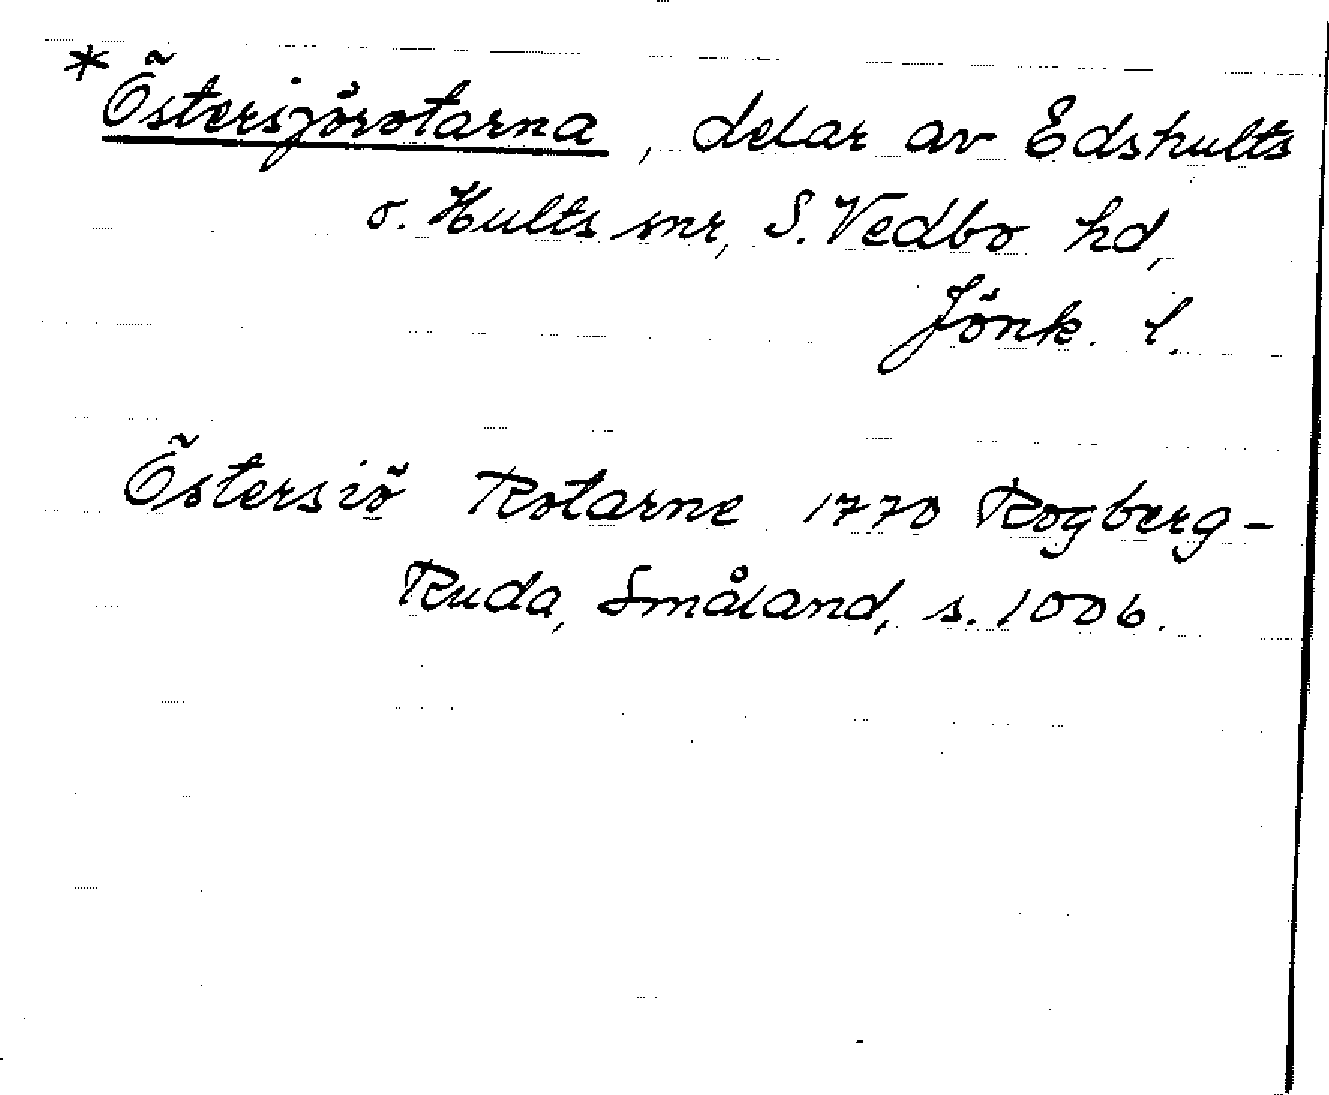 * Östersjörotarna, delar av Edshults
o. Hults snr, S. Vedbo hd,
Jönk. l.
Östersiö Rotarne 1770 Rogberg-
Ruda, Småland, s. 1006.